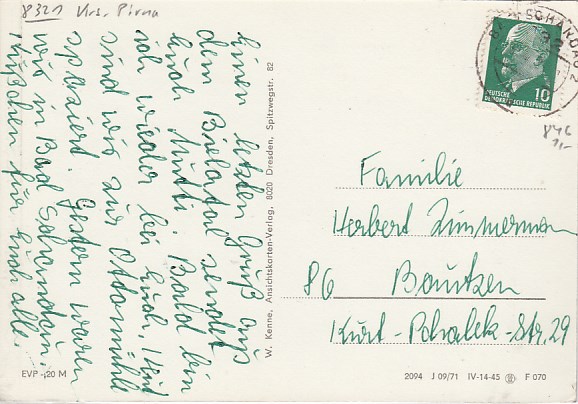 8321 Krs. Pirna
Einen letzten Gruß aus
dem Bielatal sendet
Euch Mutti. Bald bin
ich wieder bei Euch. Heut
sind wir zur Ottomühle
spaziert. Gestern waren
wir in Bad Schandau.
Küßchen für Euch alle.
EVP -,20 M
W. Kenne, Ansichtskarten-Verlag, 8020 Dresden, Spitzwegstr. 82
SCHANDAU 2
10
DEUTSCHE
DEMOKRATISCHE REPUBLIK
846
1,-
Familie
Herbert Zimmermann
86 Bautzen
Kurt-Pchalek-Str. 29
2094 J 09/71 IV-14-45 F 070